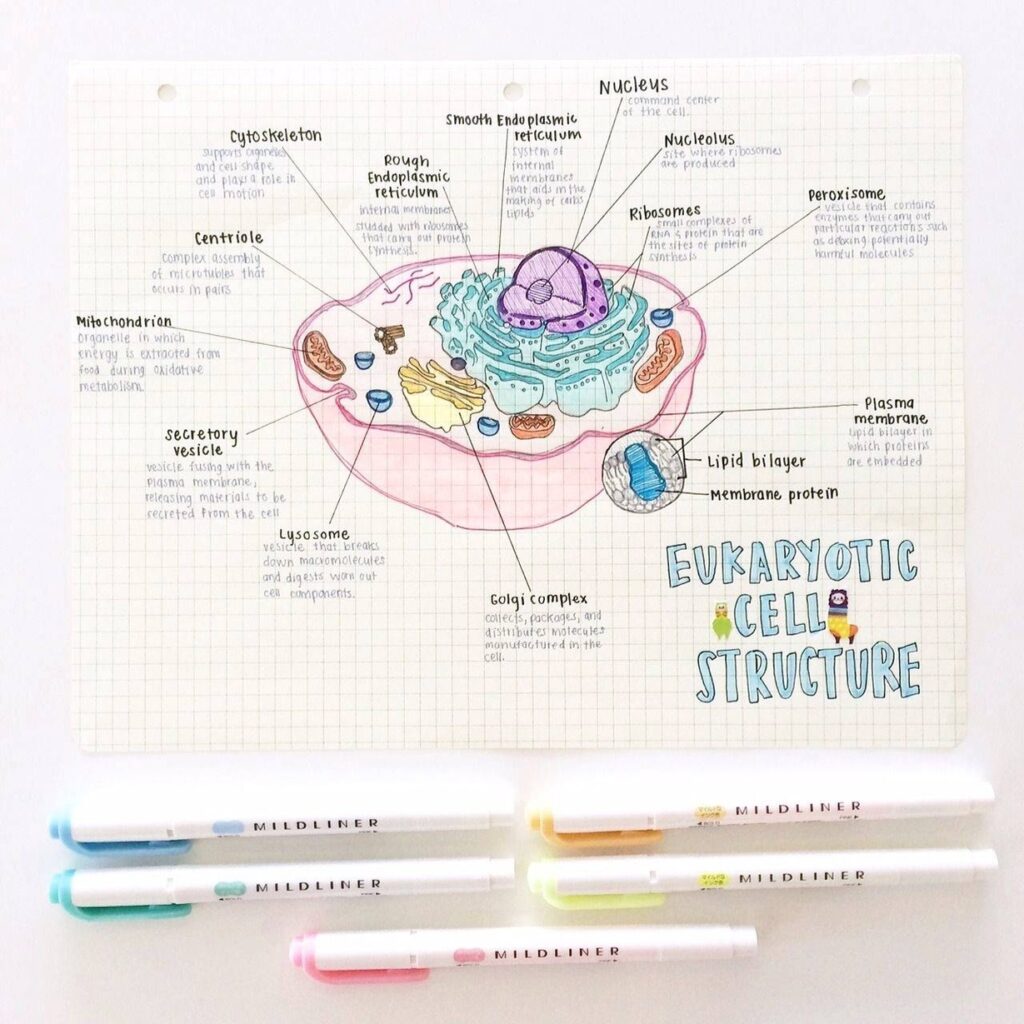 Nucleus
command center
of the cell.
Smooth Endoplasmic
reticulum
system of
internal
membranes
that aids in the
making of carbs
lipids
Cytoskeleton
supports organelles
and cell shape
and plays a role in
cell motion
Nucleolus
site where ribosomes
are produced
Rough
Endoplasmic
reticulum
internal membranes
studded with ribosomes
that carry out protein
synthesis.
Peroxisome
vesicle that contains
enzymes that carry out
particular reactions such
as detoxing potentially
harmful molecules
Ribosomes
small complexes of
RNA & protein that are
the sites of protein
synthesis
Centriole
complex assembly
of microtubles that
occurs in pairs
Mitochondrion
organelle in which
energy is extracted from
food during oxidative
metabolism.
Plasma
membrane
lipid bilayer in
which proteins
are embedded
Secretory
vesicle
vesicle fusing with the
plasma membrane,
releasing materials to be
secreted from the cell
Lipid bilayer
Membrane protein
Lysosome
vesicle that breaks
down macromolecules
and digests worn out
cell components.
Golgi complex
collects, packages, and
distributes molecules
manufactured in the
cell.
EUKARYOTIC
CELL
STRUCTURE
MILDLINER
MILDLINER
MILDLINER
MILDLINER
MILDLINER